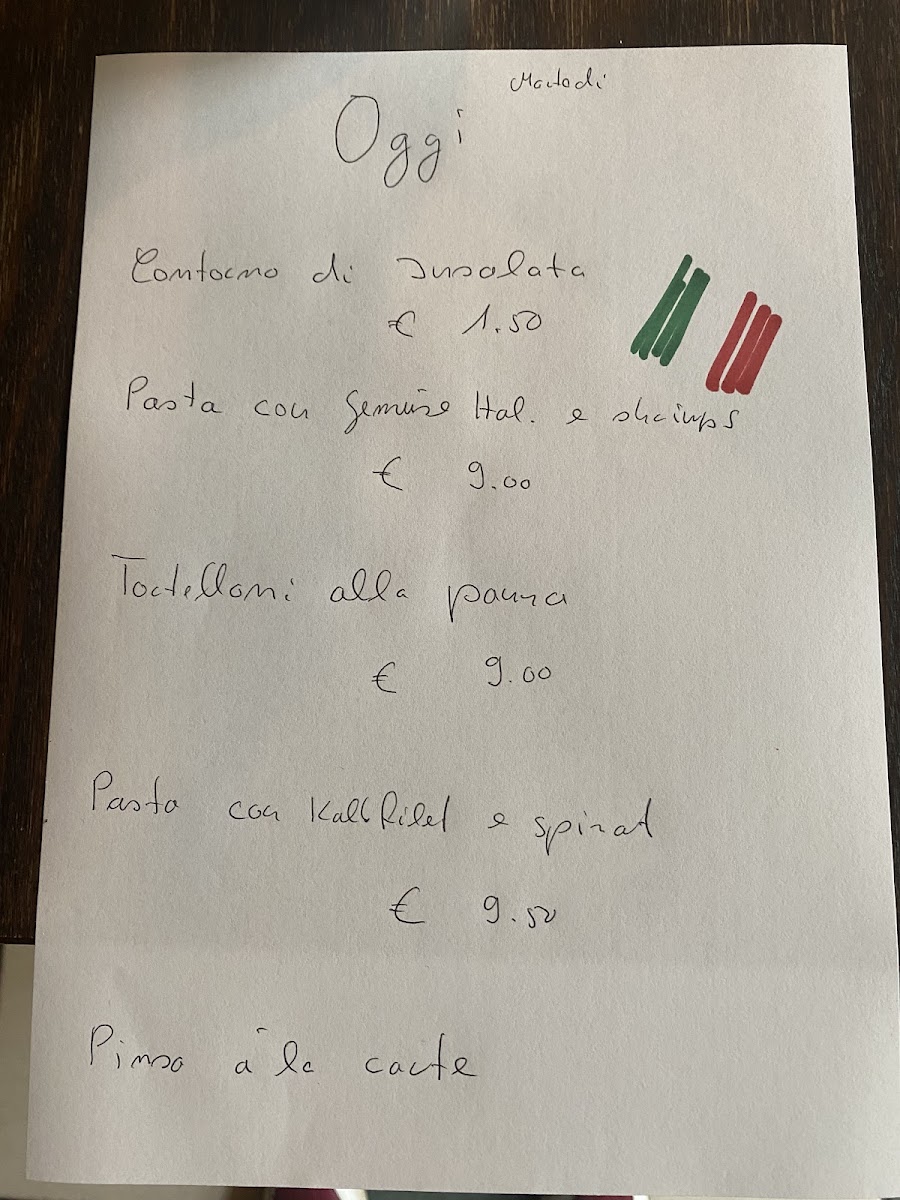 Martedi
Oggi
Contorno di Insalata
€ 1.50
Pasta con Gemüse Ital. e shrimps
€ 9.00
Tortelloni alla panna
€ 9.00
Pasta con Kalbfilet e spinat
€ 9.50
Pinsa à la carte